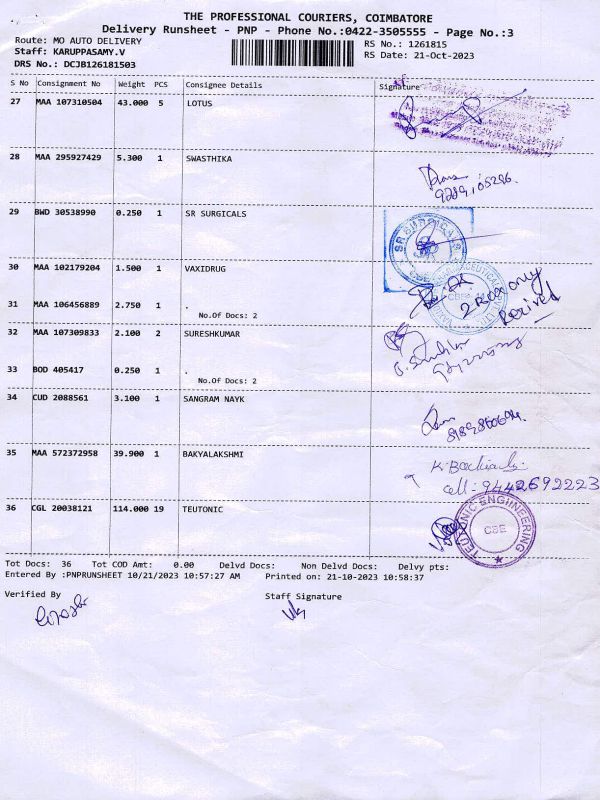 THE PROFESSIONAL COURIERS, COIMBATORE
Delivery Runsheet - PNP - Phone No.:0422-3505555 - Page No.:3
Route: MO AUTO DELIVERY RS No.: 1261815
Staff: KARUPPASAMY.V RS Date: 21-Oct-2023
DRS No.: DCJB126181503
S No Consignment No Weight PCS Consignee Details Signature
27 MAA 107310504 43.000 5 LOTUS
28 MAA 295927429 5.300 1 SWASTHIKA
29 BWD 30538990 0.250 1 SR SURGICALS
SR SURGICALS
30 MAA 102179204 1.500 1 VAXIDRUG
CBE
2 Box only
31 MAA 106456889 2.750 1 .
No.Of Docs: 2
32 MAA 107309833 2.100 2 SURESHKUMAR
33 BOD 405417 0.250 1 .
No.Of Docs: 2
34 CUD 2088561 3.100 1 SANGRAM NAYK
35 MAA 572372958 39.900 1 BAKYALAKSHMI
cell: 9442692223
36 CGL 20038121 114.000 19 TEUTONIC
TEUTONIC ENGINEERING
CBE
Tot Docs: 36 Tot COD Amt: 0.00 Delvd Docs: Non Delvd Docs: Delvy pts:
Entered By :PNPRUNSHEET 10/21/2023 10:57:27 AM Printed on: 21-10-2023 10:58:37
Verified By Staff Signature